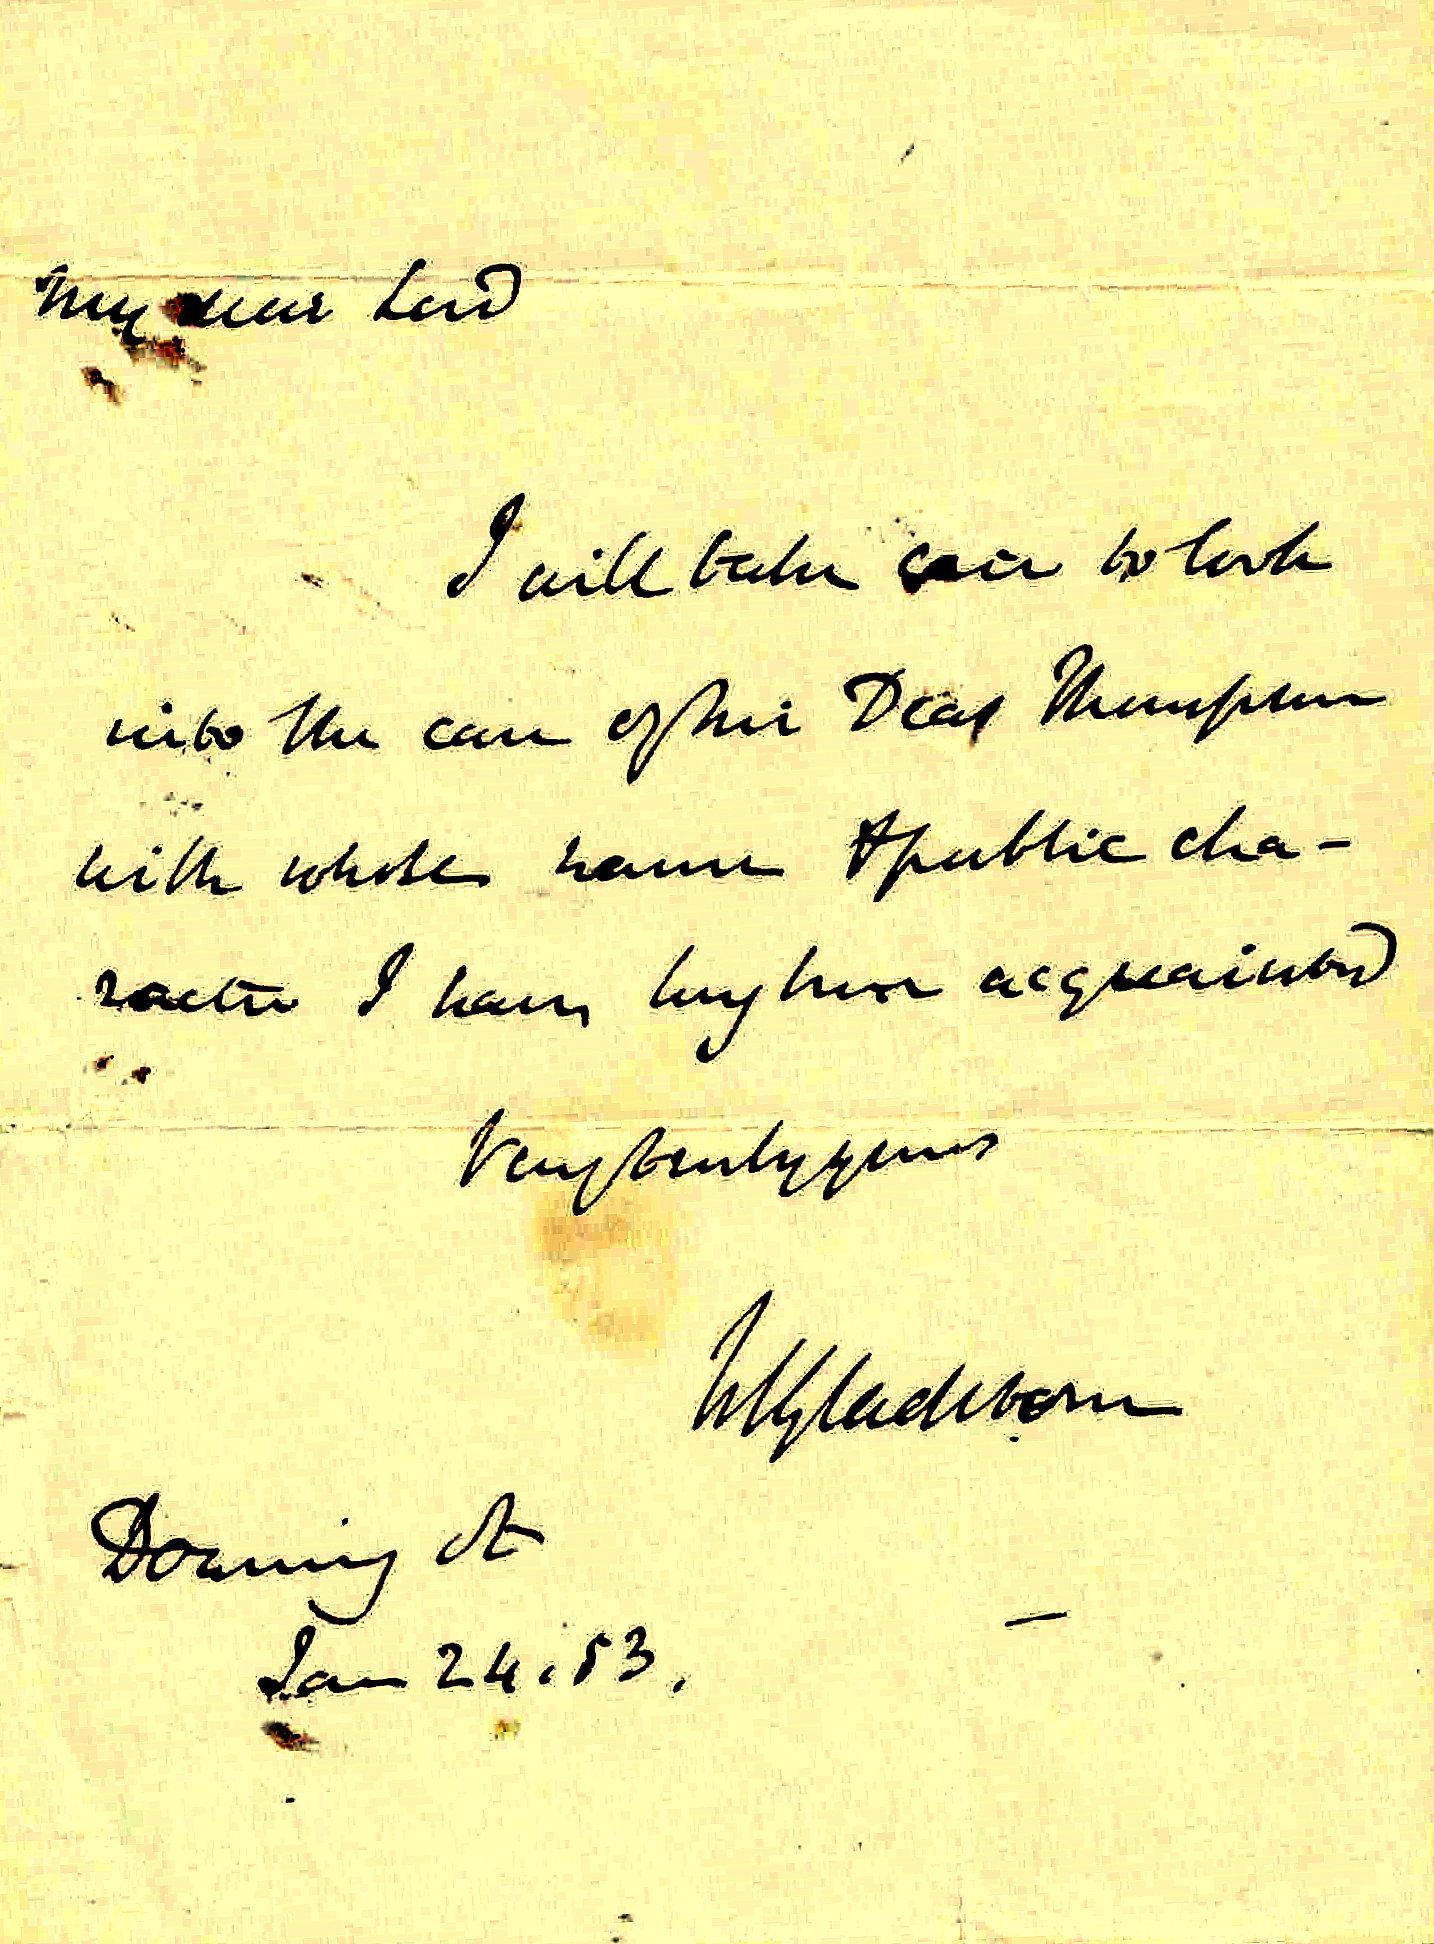 My dear Lord
I will take care to look
into the case of Mr Deas Thompson
with whose name & public cha-
racter I have long been acquainted
Very truly yours
WEGladstone
Downing St
Jan 24. 53.